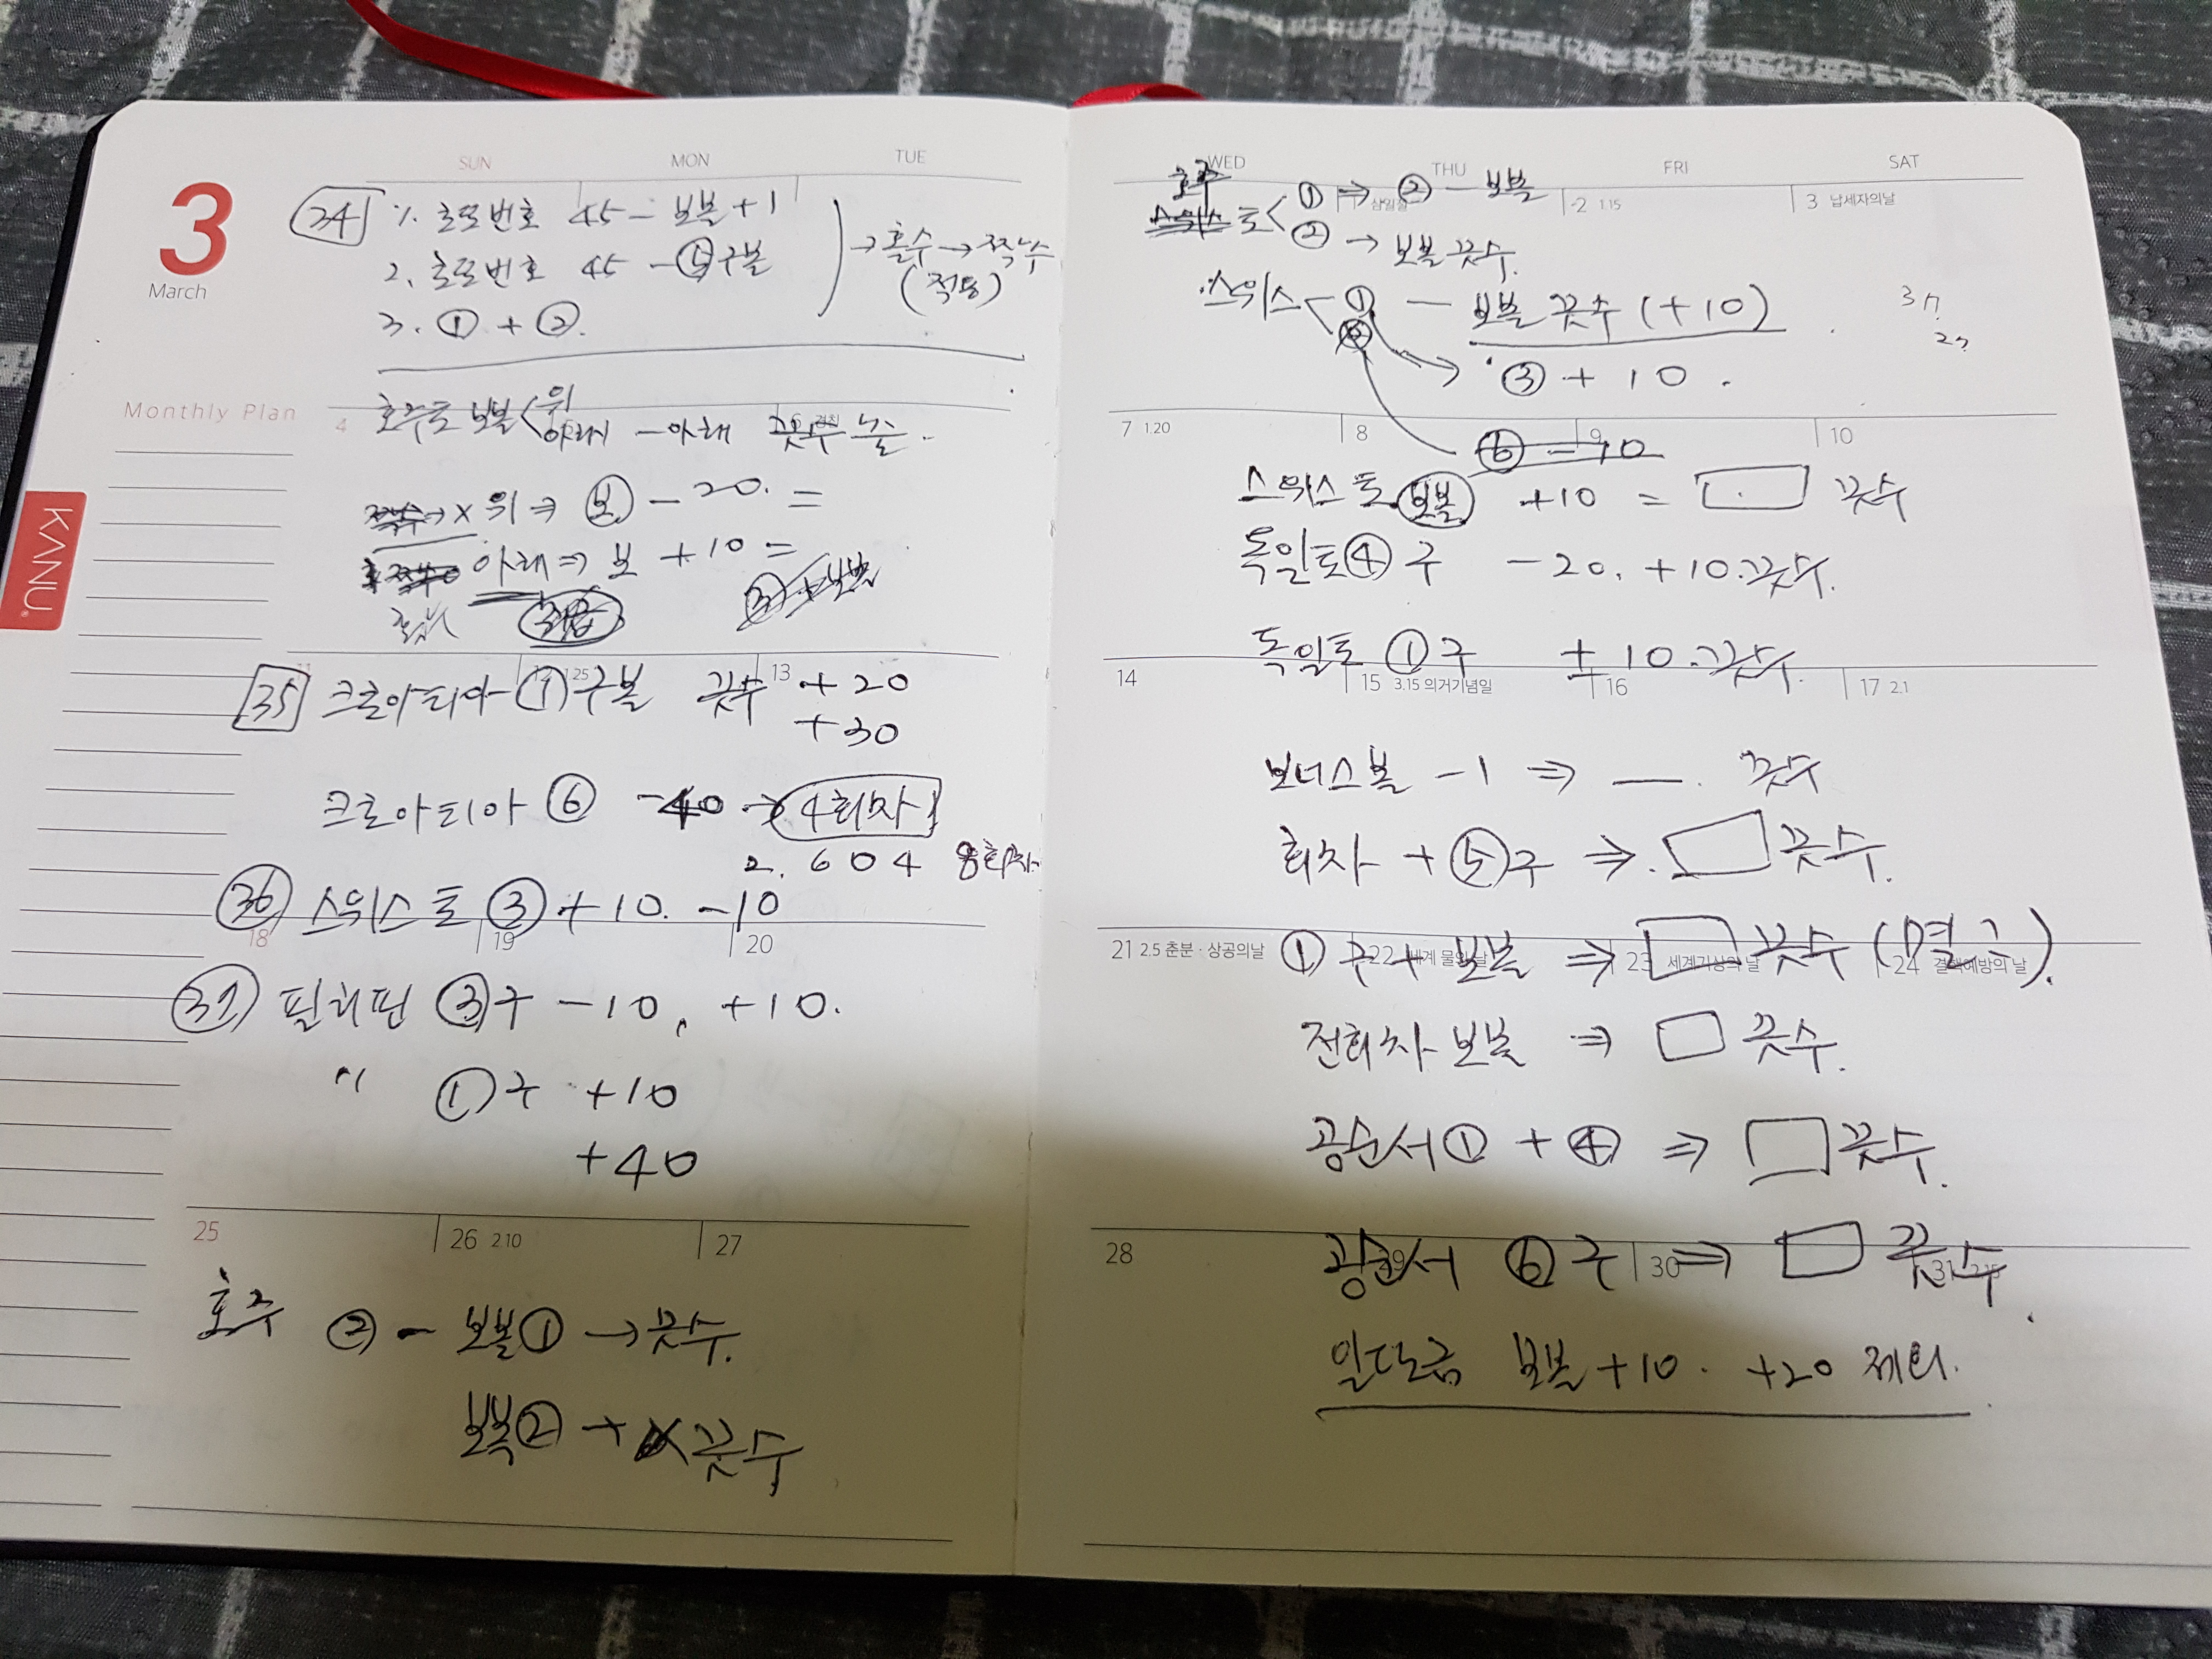 3
March
SUN MON TUE
34 1. 로또번호 45 - 보볼 + 1
2. 로또번호 45 - ⑤구볼
3. ① + ②.
→ 홀수 → 짝수
(적용)
Monthly Plan
4
호주토 보볼 < 위
아래 - 아래 끗수 노는.
위 ⇒ 보 - 20. =
아래 ⇒ 보 + 10 =
KANU
13
35 크로아티아 - ① 구볼 끗수 + 20
+ 30
크로아티아 ⑥ - 40 → 4회차
2. 604
36 스위스토 ③ + 10. - 10
18 19 20
37 필리핀 ③구 - 10, + 10.
〃 ①구 + 10
+ 40
25 26 2.10 27
호주 ② - 보볼① → 끗수.
보볼② + 끗수
WED THU FRI SAT
호주
토 < ① ⇒ ② - 보볼
② → 보볼 끗수.
2 1.15 3 납세자의날
스위스 < ① - 보볼 끗수 (+10)
③ + 10.
7 1.20 8 9 10
⑥ - 10
스위스토 보볼 + 10 = □ 끗수
독일토 ④ 구 - 20. + 10. 끗수.
독일토 ① 구 + 10. 끗수.
14 15 3.15 의거기념일 16 17 2.1
보너스볼 - 1 ⇒ — 끗수
회차 + ⑤구 ⇒ □ 끗수.
21 2.5 춘분 · 상공의날 22 세계 물의 날 23 세계기상의 날 24 결핵예방의 날
① 구 + 보볼 ⇒ □ 끗수
전회차 보볼 ⇒ □ 끗수.
공순서 ① + ④ ⇒ □ 끗수.
28 30 31
공순서 ⑥ 구 ⇒ □ 끗수.
보볼 + 10. + 20 제외.